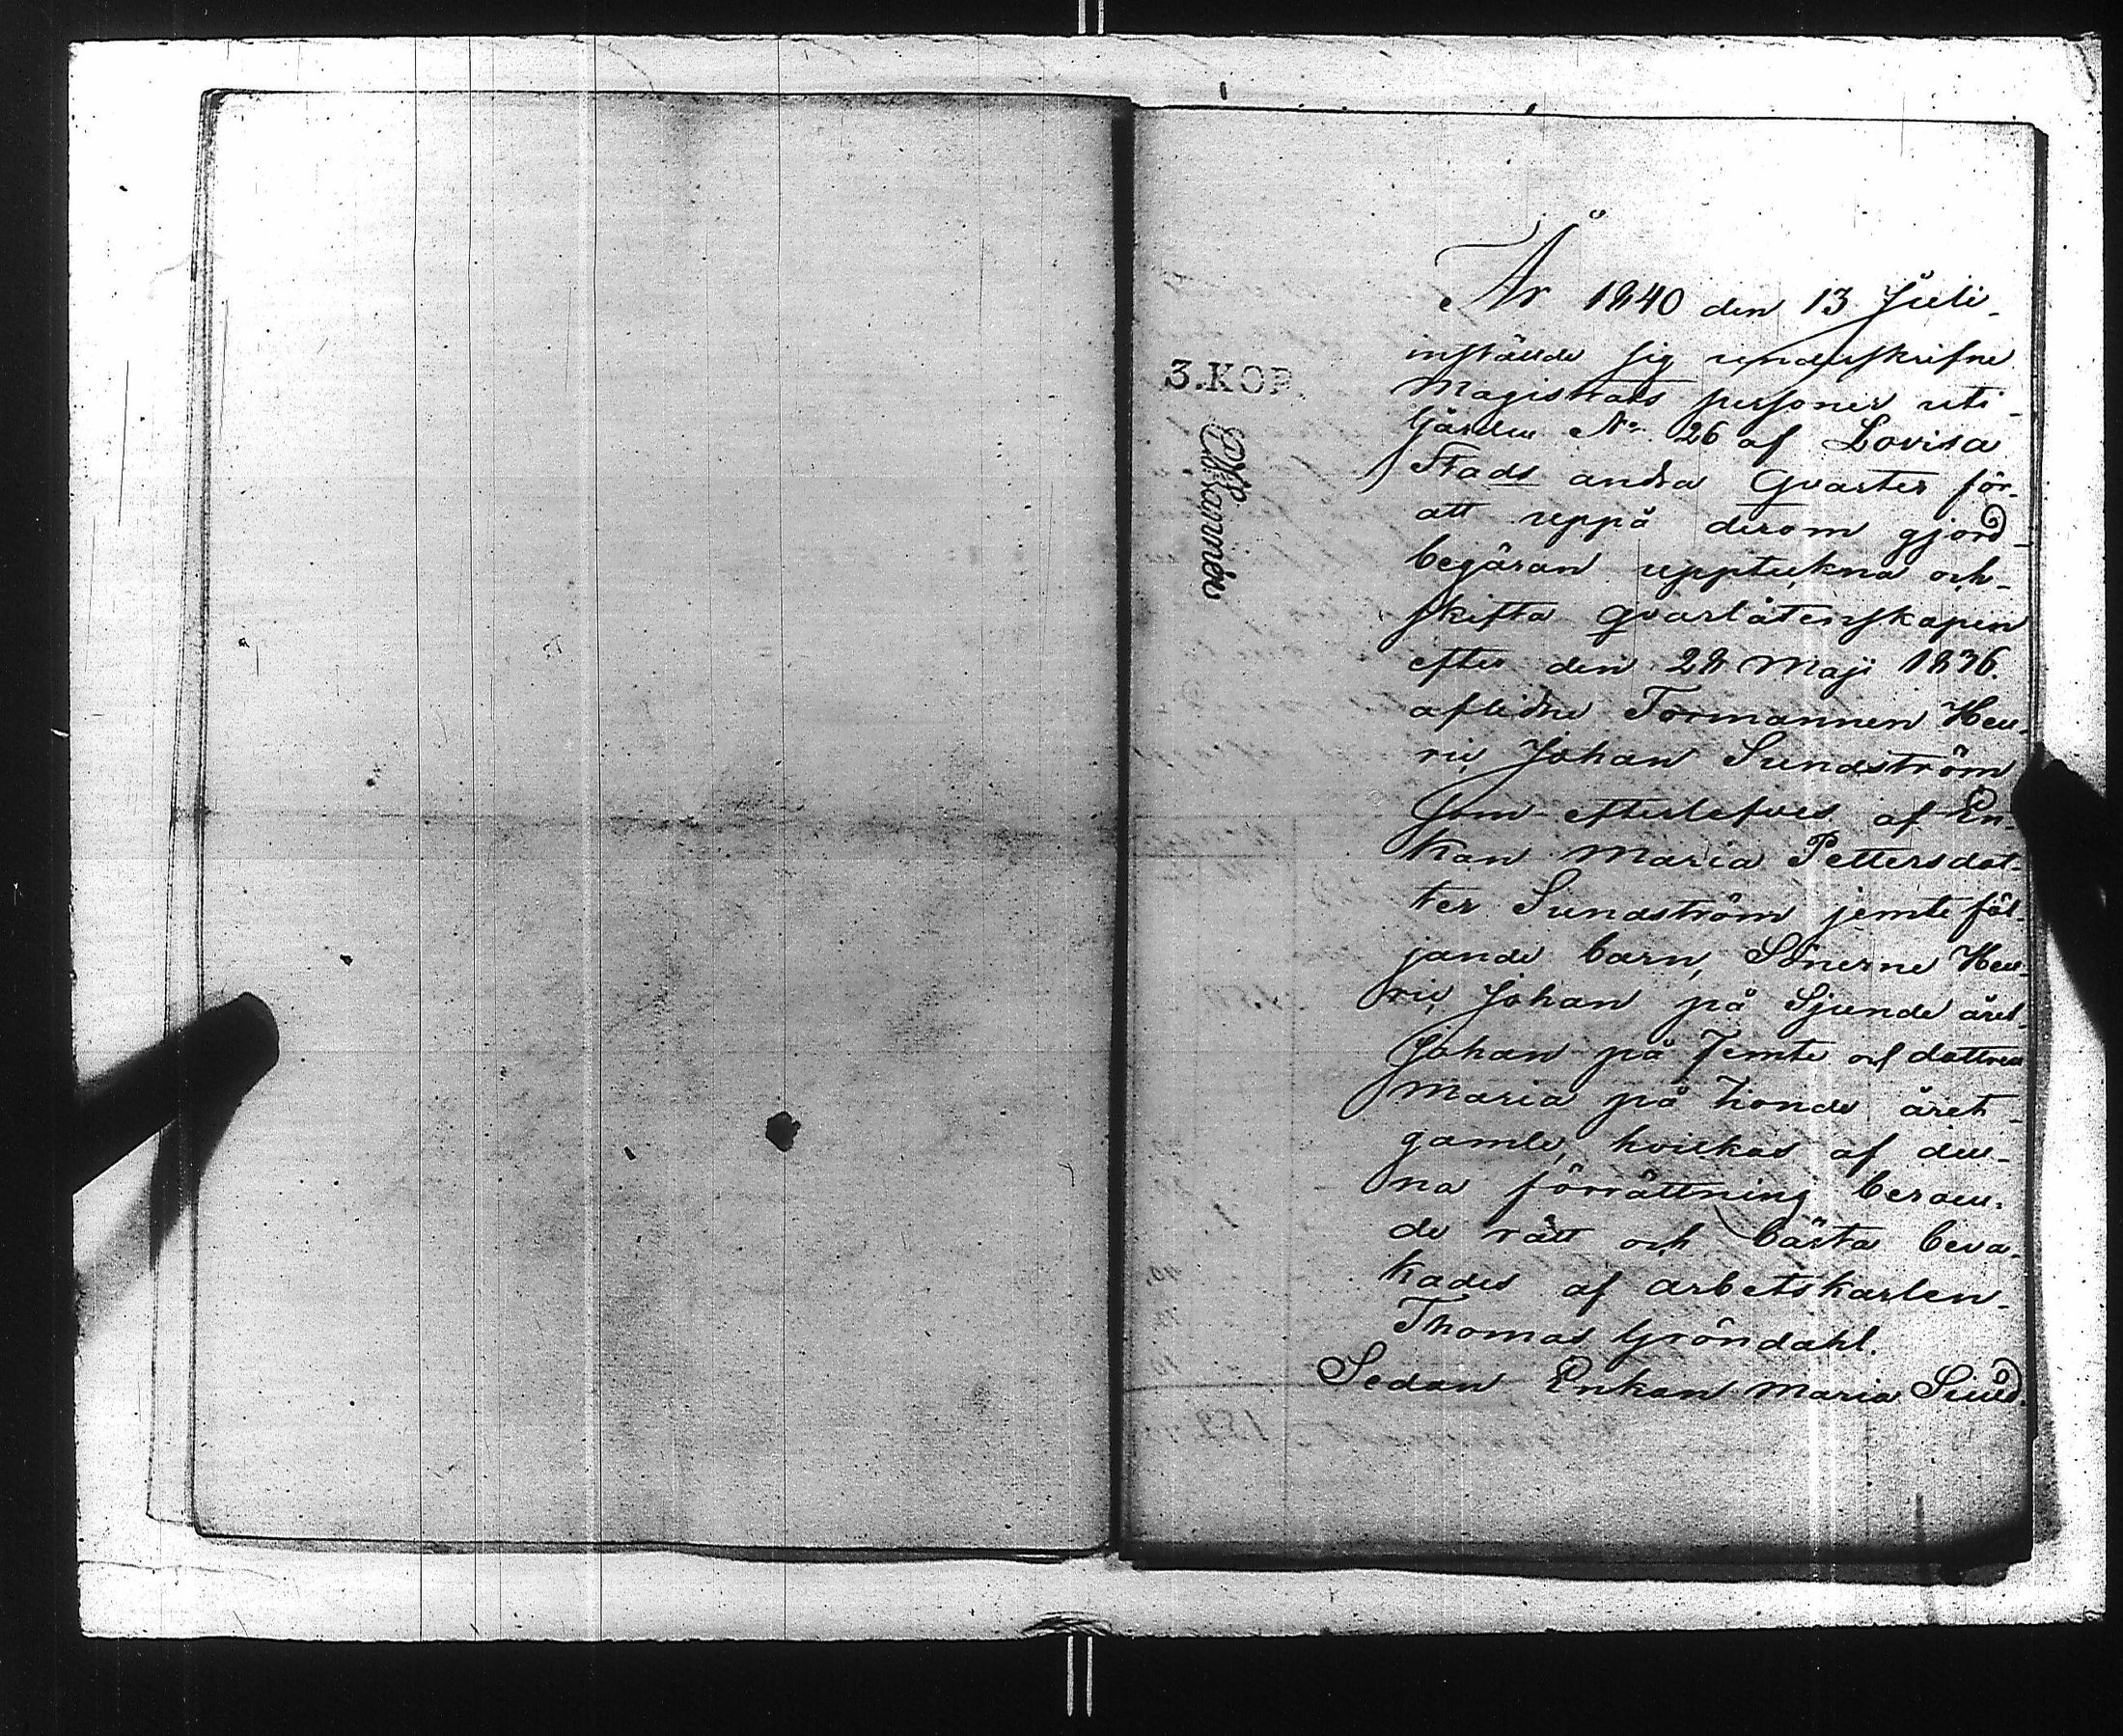 År 1840 den 13 Juli
instälde sig underskrifne
3.KOP.
Magistrats personer uti
Gården No. 26 af Lovisa
Stads andra Qvarter för
att uppå derom gjord
begäran uppteckna och
skifta qvarlåtenskapen
efter den 28 Maji 1836.
aflidne Formannen Hen-
ric Johan Sundström
som efterlefves af En-
kan Maria Pettersdot-
ter Sundström jemte föl-
jande barn, Sönerne Hen-
ric Johan på Sjunde året
Johan på femte och dottren
Maria på tionde året
gamle, hvilkas af den-
na förrättning beroen-
de rätt och bästa beva-
kades af arbetskarlen
Thomas Gröndahl.
Sedan Enkan Maria Sund-